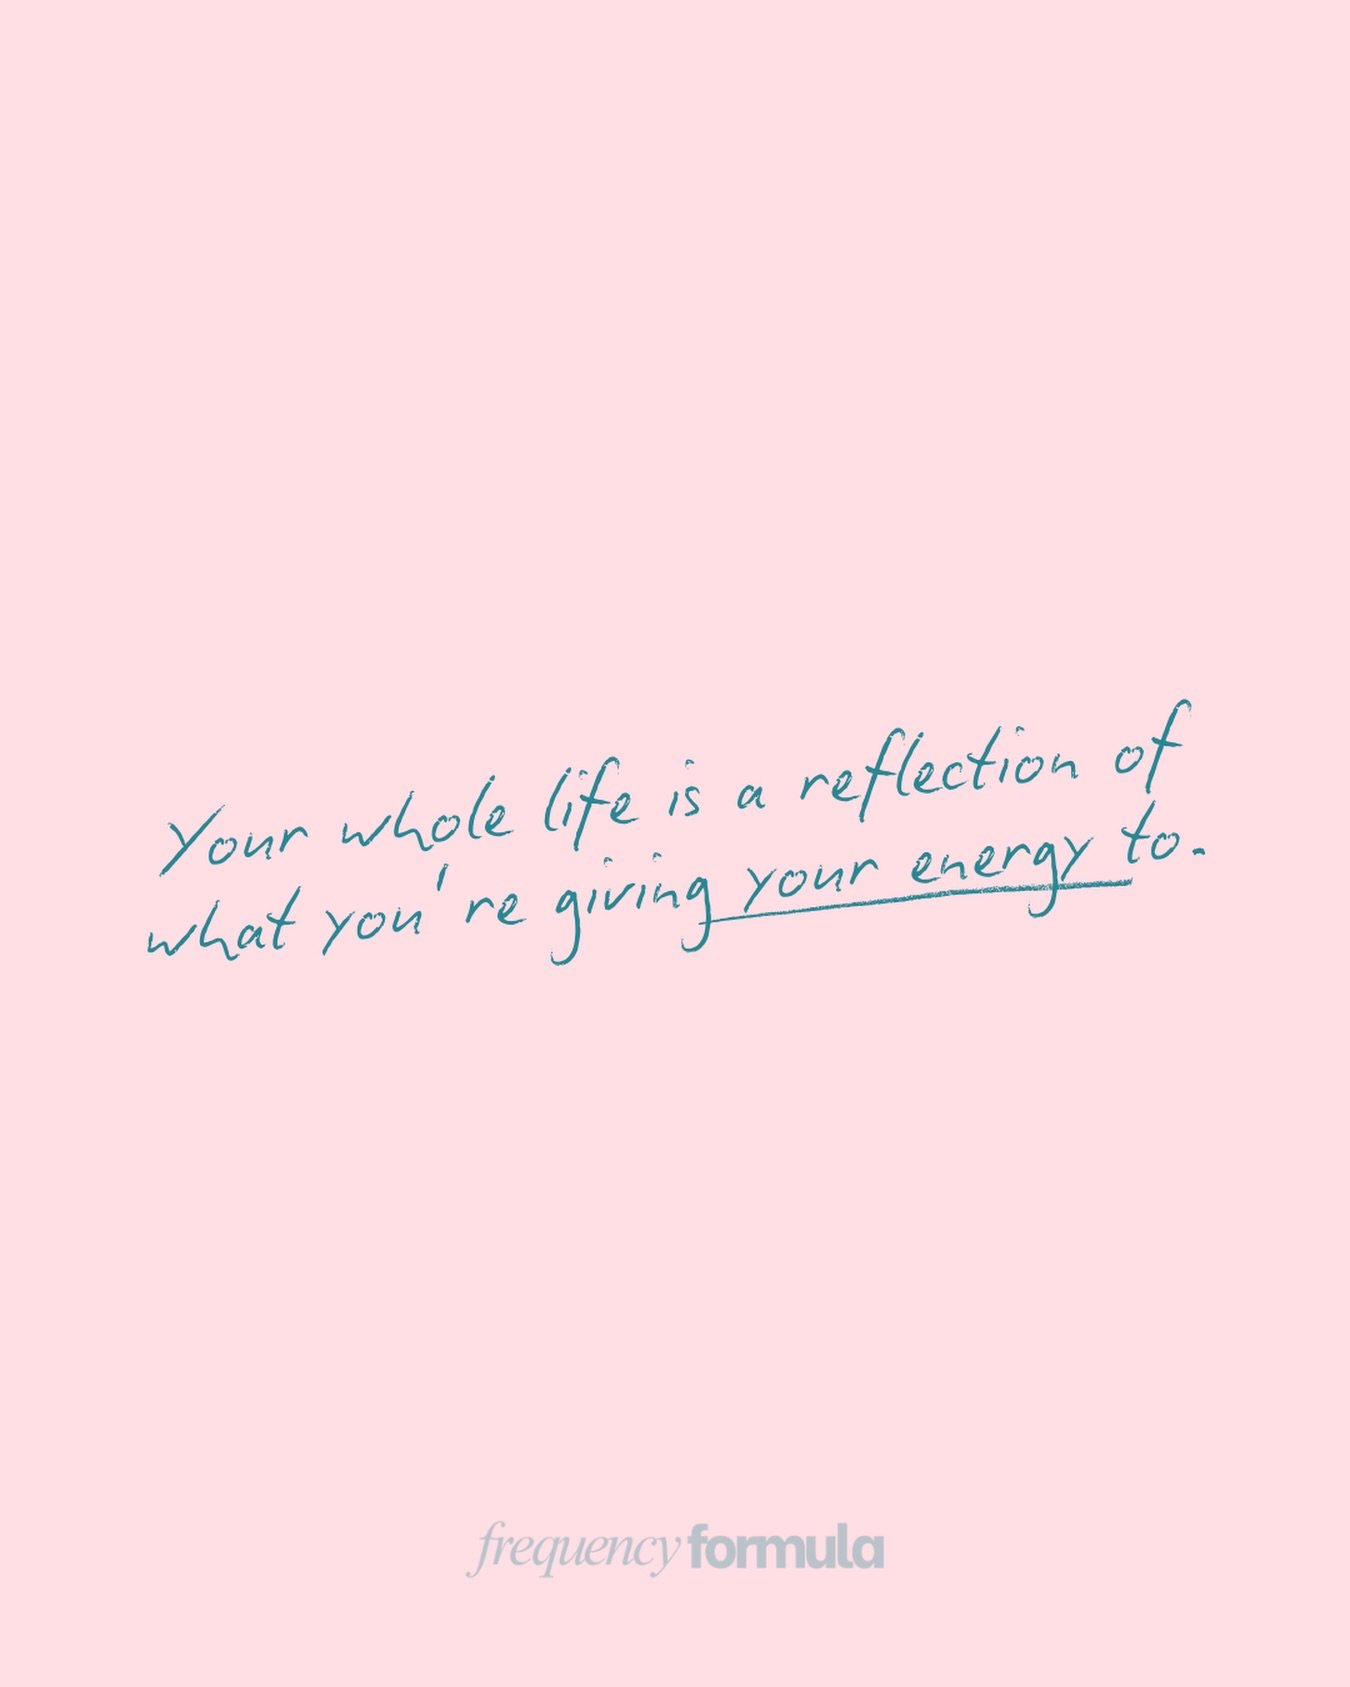 Your whole life is a reflection of
what you're giving your energy to.
frequency formula